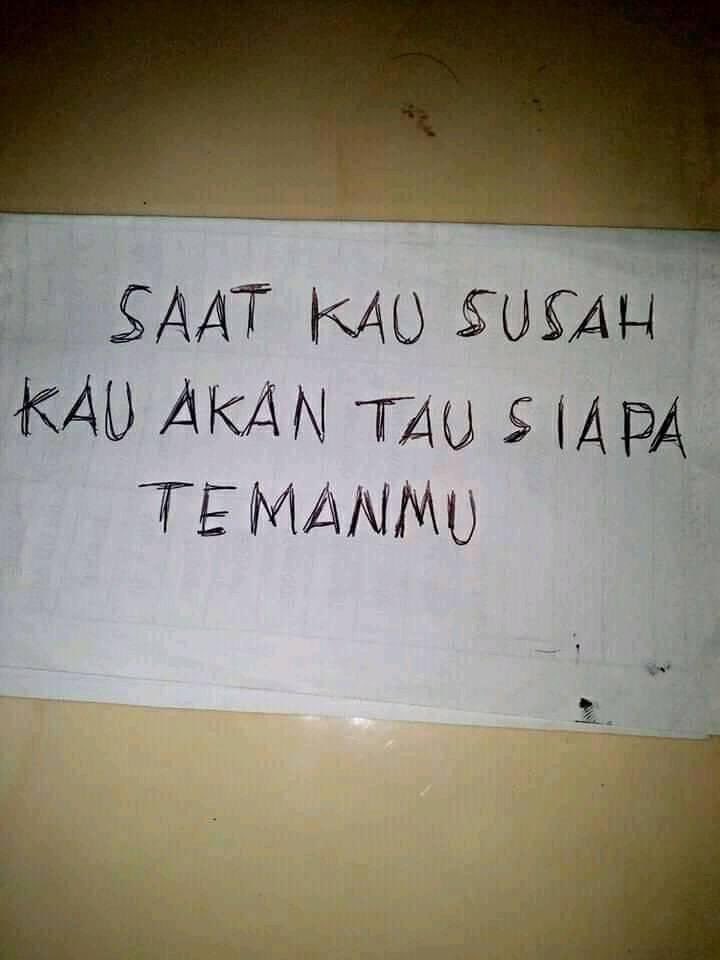 SAAT KAU SUSAH
KAU AKAN TAU SIAPA
TEMANMU